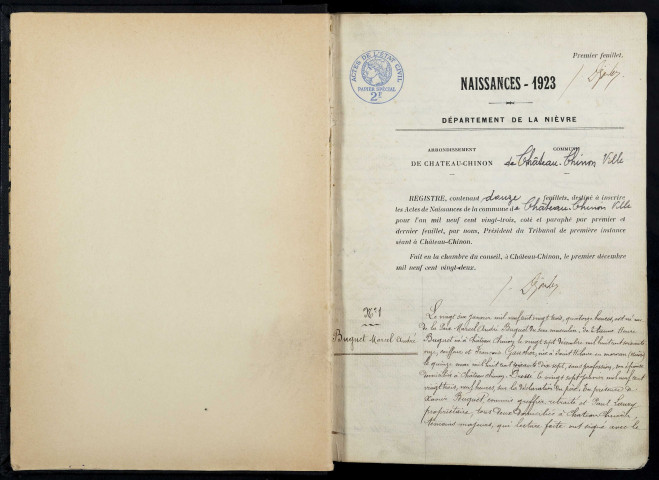 Premier feuillet.
ACTES DE L'ÉTAT CIVIL
PAPIER SPÉCIAL
2F
NAISSANCES - 1923
DÉPARTEMENT DE LA NIÈVRE
ARRONDISSEMENT
DE CHATEAU-CHINON
COMMUNE
de Château-Chinon Ville
REGISTRE, contenant douze feuillets, destiné à inscrire
les Actes de Naissances de la commune de Château-Chinon Ville
pour l'an mil neuf cent vingt-trois, coté et paraphé par premier et
dernier feuillet, par nous, Président du Tribunal de première instance
séant à Château-Chinon.
Fait en la chambre du conseil, à Château-Chinon, le premier décembre
mil neuf cent vingt-deux.
N°1
Buguet Marcel André
Le vingt six janvier mil neuf cent vingt trois, quatorze heures, est né rue
de la Paix Marcel André Buguet du sexe masculin, de
Buguet né à Château Chinon le vingt sept décembre mil huit cent
coiffeur et Françoise Gauthier, née à Saint Hilaire en Morvan (Nièvre)
le quinze mai mil huit cent soixante dix sept, sans profession, son épouse
domiciliés à Château Chinon. Dressé le vingt sept janvier mil neuf cent
vingt trois, neuf heures, sur la déclaration du père. En présence de
Buguet, commis greffier retraité et Paul
propriétaire, tous deux domiciliés à Château Chinon,
témoins majeurs, qui lecture faite ont signé avec le